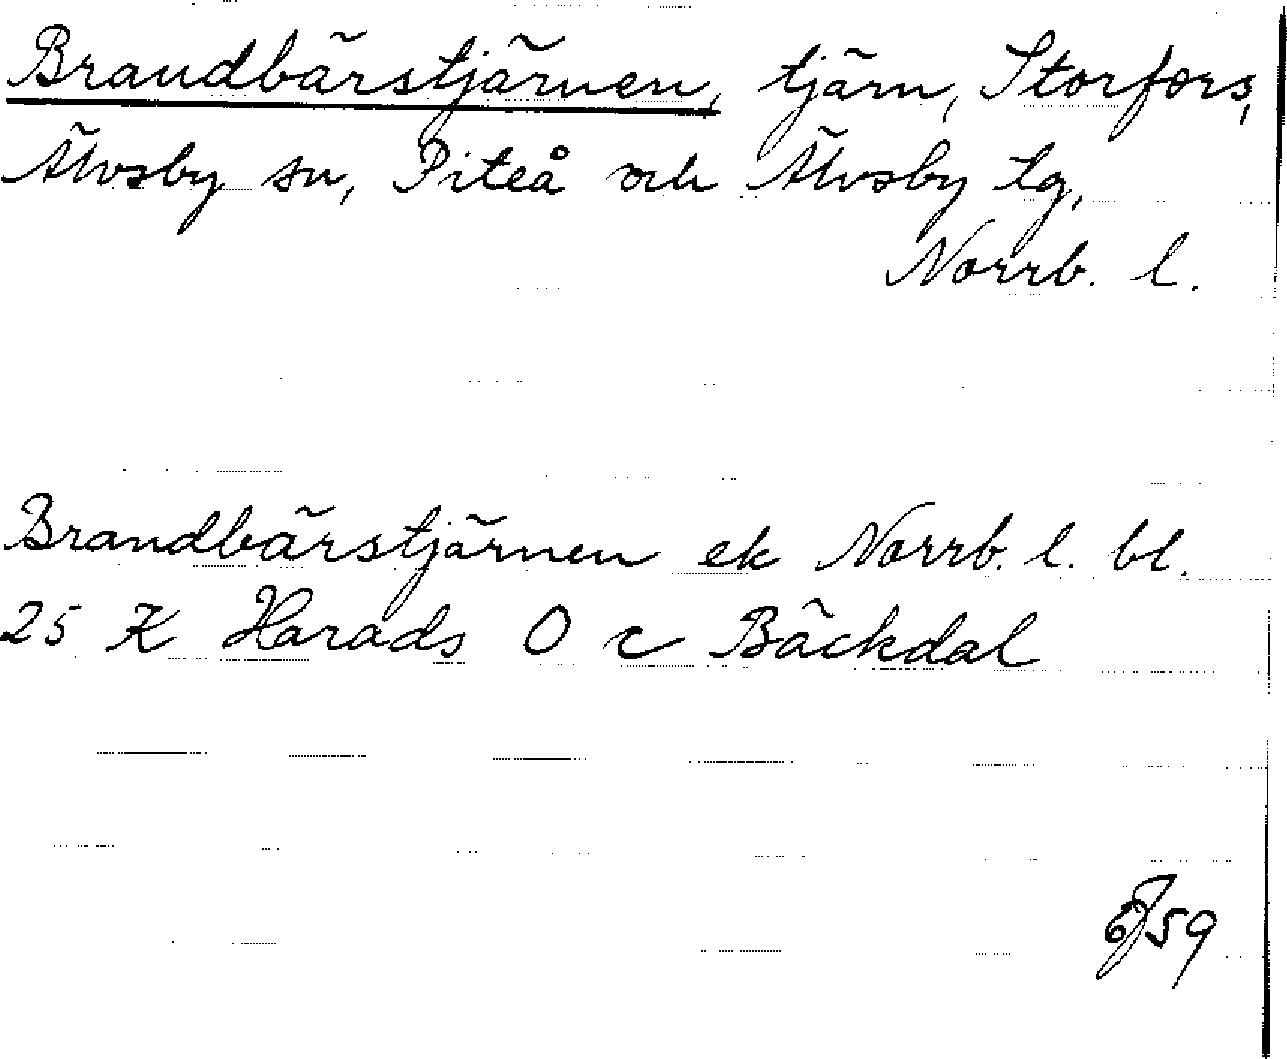 Brandbärstjärnen, tjärn, Storfors,
Älvsby sn, Piteå och Älvsby tg,
Norrb. l.
Brandbärstjärnen ek Norrb. l. bl.
25 K Harads O c Bäckdal
59